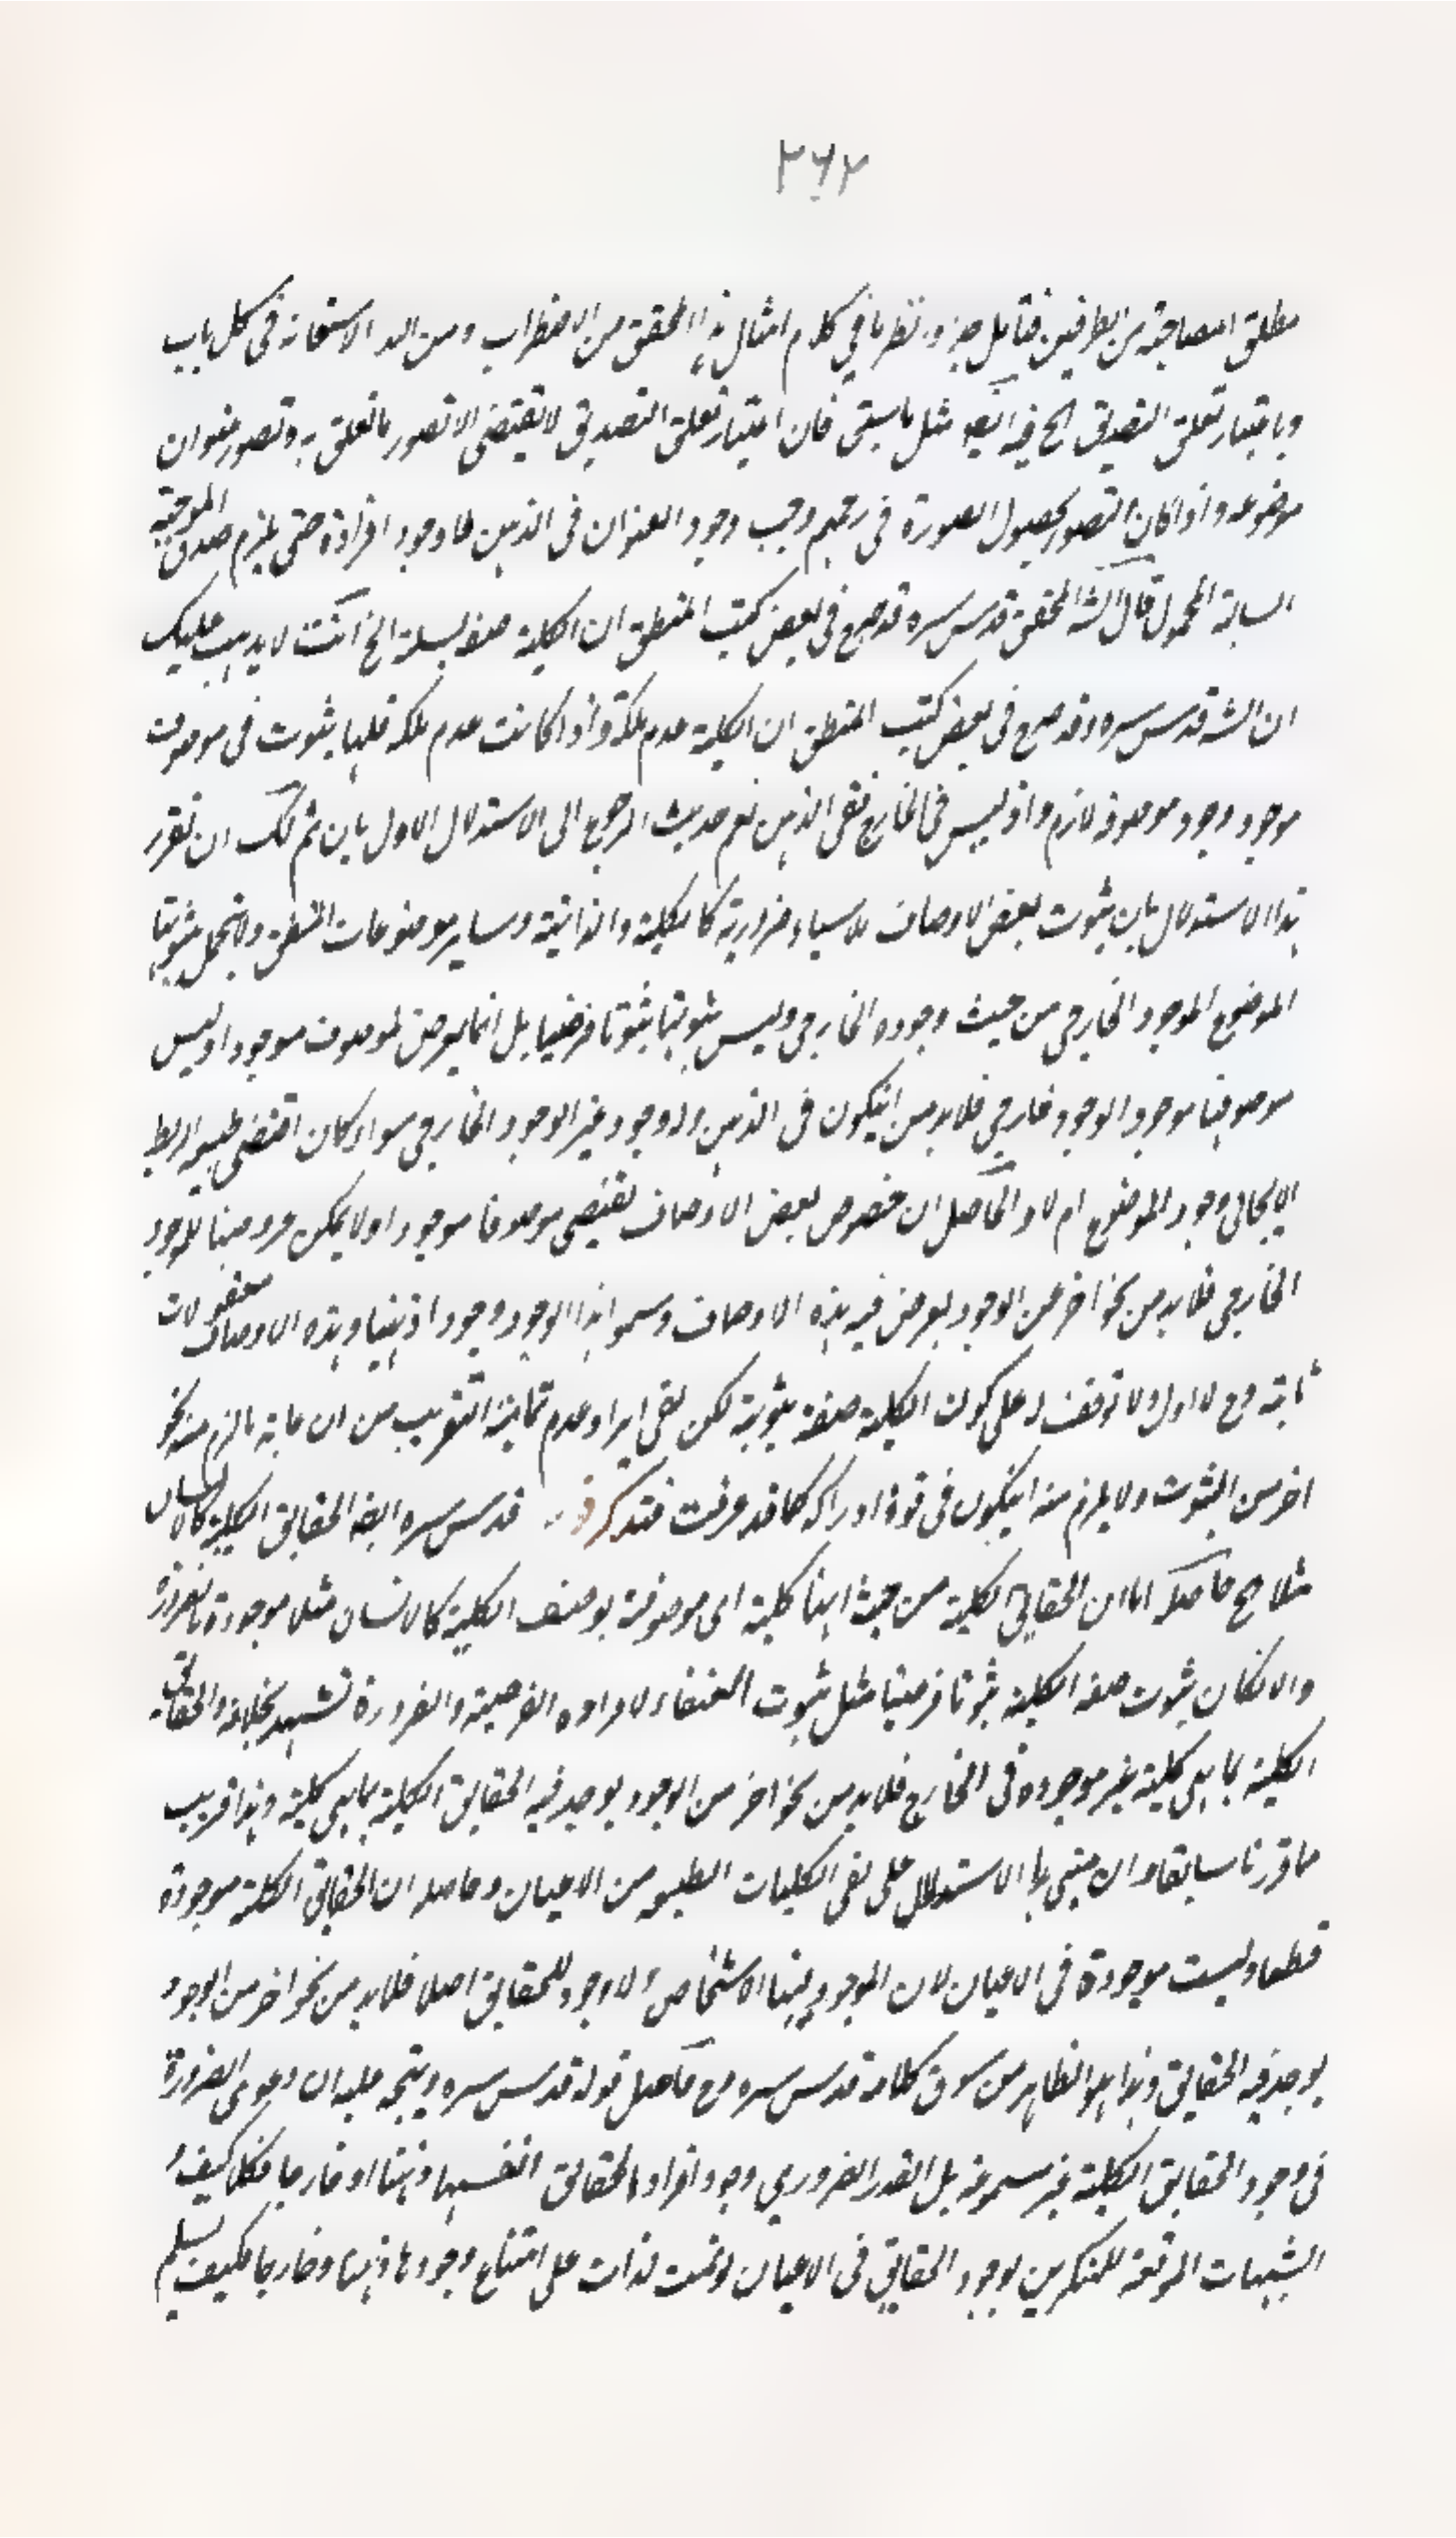 ٢٦٢
مطلق المصاحبة من الطرفين فتأمل جزء ونظرنا في كلام امثال هذا المحقق من الاضطراب ومن الله الاستعانة في كل باب
وباعتبار تعلق التصديق الخ فيه ايضا مثل ما سبق فان اعتبار تعلق التصديق لا يقتضى الا تصور ما تعلق به وتصور عنوان
موضوعه واذا كان التصور بحصول الصورة في زعمهم وجب وجود العنوان في الذهن لا وجود افراده حتى يلزم صدق الموجبة
السالبة المحمول قال الش المحقق قدس سره قد صرح في بعض كتب المنطق ان الكلية صفة سلبية الخ انت لا يذهب عليك
ان الش قدس سره قد صرح في بعض كتب المنطق ان الكلية عدم ملكة واذا كانت عدم ملكة فلها ثبوت في موصوف
موجود وجود موصوفه لازم واذ ليس في الخارج ففي الذهن نعم حديث الرجوع الى الاستدلال الاول باين ثم لك ان تقرر
هذا الاستدلال بان ثبوت بعض الاوصاف للاشياء ضرورية كالكلية والذاتية وساير موضوعات المنطق ولا يحتمل ثبوتها
الموضوع الموجود الخارجي من حيث وجوده الخارجي وليس ثبوتها ثبوتا فرضيا بل انما يعرض لموصوف موجود اوليس
موصوفها موجود الوجود خارجي فلا بد من ان يكون في الذهن وله وجود غير الوجود الخارجي سواء كان اقتضى طبيعة الربط
الايجابي وجود الموضوع ام لا والحاصل ان خصوص بعض الاوصاف تقتضى موصوفا موجودا ولا يمكن عروضها للموجود
الخارجي فلا بد من نحو اخر من الوجود يعرض فيه هذه الاوصاف وسموا هذا الوجود وجودا ذهنيا وهذه الاوصاف معقولات
ثانية وح لا اول ولا توقف له على كون الكلية صفة ثبوتية لكن بقى ايراد عدم تمامية التقريب من ان غاية ما لزم منه نحو
اخر من الثبوت ولا يلزم منه ان يكون في قوة ادراكه كما قد عرفت فتذكر قدس سره ايضا الحقايق الكلية كالانسان
مثلا الخ حاصله اما ان الحقايق الكلية من حيث انها كلية اى موصوفة بوصف الكلية كالانسان مثلا موجودة بالضرورة
والا لكان ثبوت صفة الكلية ثبوتا فرضيا مثل ثبوت العنقاء لافراده الفرضية والضرورة تشهد بخلافه والحقائق
الكلية بما هي كلية غير موجودة في الخارج فلا بد من نحو اخر من الوجود يوجد فيه الحقايق الكلية بما هي كلية وهذا قريب
ما قررنا سابقا وان مبنى هذا الاستدلال على نفى الكليات الطبيعية من الاعيان وحاصله ان الحقايق الكلية موجودة
قطعا وليست موجودة في الاعيان لان الموجود فيها الاشخاص ولا وجود للحقايق اصلا فلا بد من نحو اخر من الوجود
يوجد فيه الحقايق وهذا هو الظاهر من سوق كلامه قدس سره مع حاصل قوله قدس سره ويتجه عليه ان دعوى الضرورة
في وجود الحقايق الكلية غير مسموعة بل القدر الضروري وجود افراد الحقائق انفسها ذهنا او خارجا فكلا كيف و
الشبهات الموقعة للمنكرين لوجود الحقايق في الاعيان لو تمت لدلت على امتناع وجودها ذهنا وخارجا فكيف يسلم